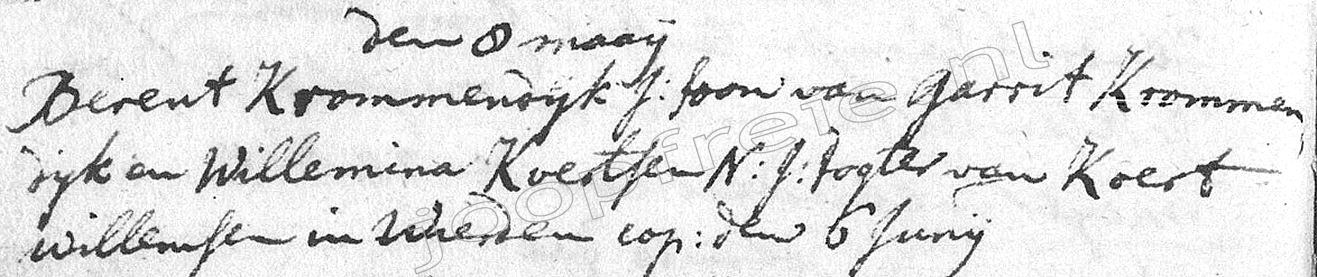 den 8 maaij
Berent Krommendyk J: soon van Garrit Krommen
dyk en Willemina Koertsen N: J: dogter van Koert
willemsen in Wierden cop: den 6 Junij
joopfreie.nl